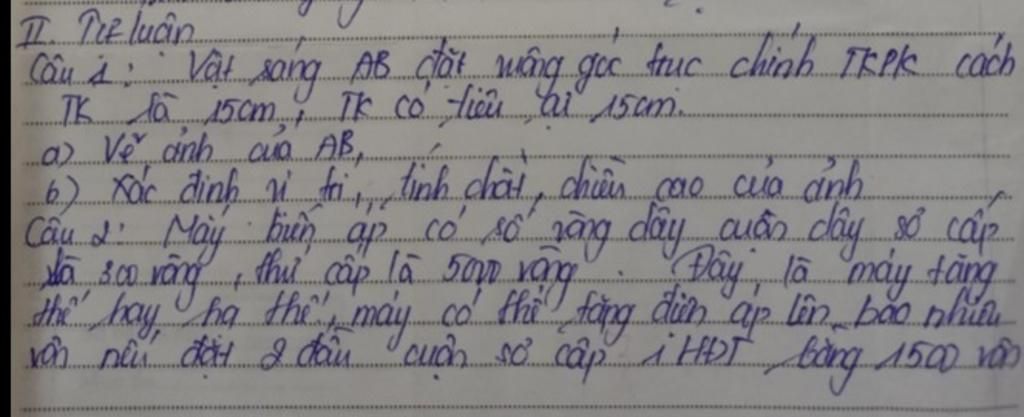 II. Tự luận
Câu 1: Vật sáng AB đặt vuông góc trục chính TKPK cách
TK là 15cm, TK có tiêu cự 15cm.
a) Vẽ ảnh của AB,
b) Xác định vị trí, tính chất, chiều cao của ảnh
Câu 2: Máy biến áp có số vòng dây cuộn dây sơ cấp
là 300 vòng, thứ cấp là 5000 vòng. Đây là máy tăng
thế hay hạ thế, máy có thể tăng điện áp lên bao nhiêu
vôn nếu đặt 2 đầu cuộn sơ cấp 1 HĐT bằng 1500 vôn